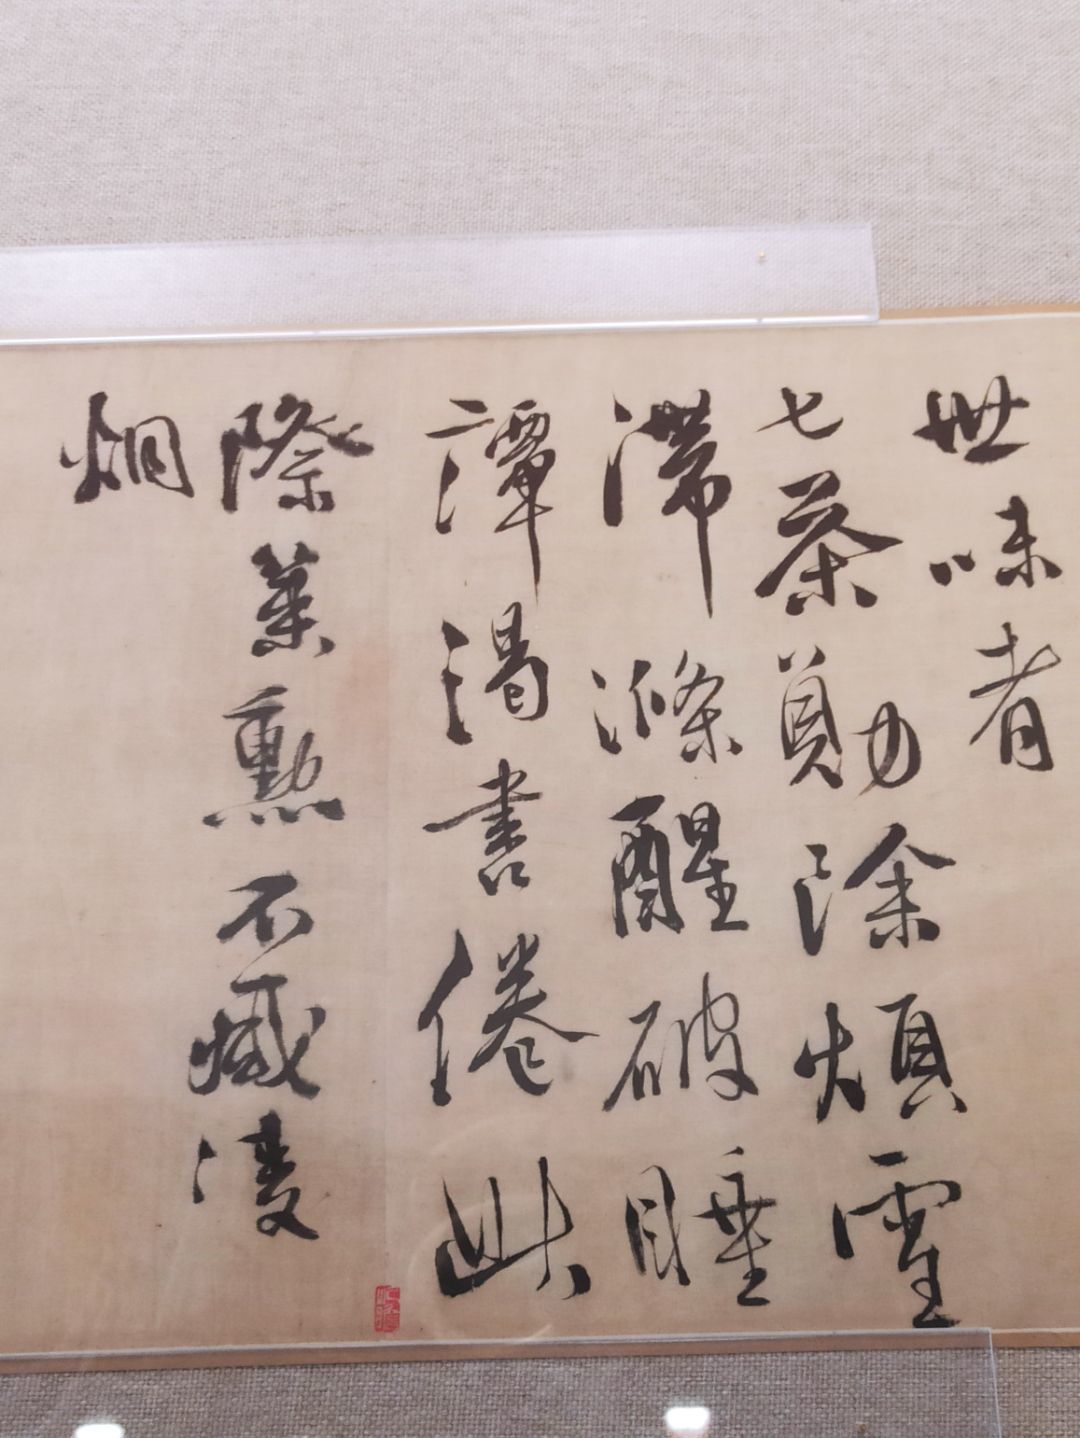 世味者
七茶勛除煩雪
滯滌醒破睡
譚渴書倦此
際策勲不減凌
烟